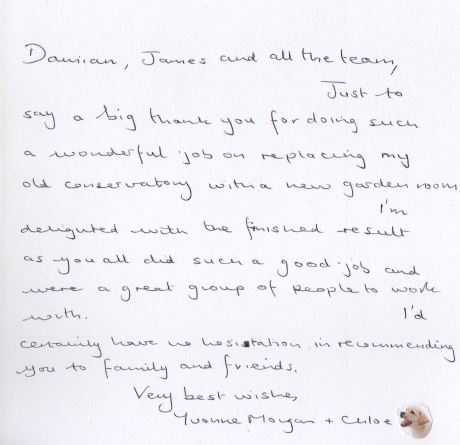 Damian, James and all the team,
Just to
say a big thank you for doing such
a wonderful job on replacing my
old conservatory with a new garden room.
I'm
delighted with the finished result
as you all did such a good job and
were a great group of people to work
with. I'd
certainly have no hesitation in recommending
you to family and friends.
Very best wishes,
Yvonne Morgan + Chloe